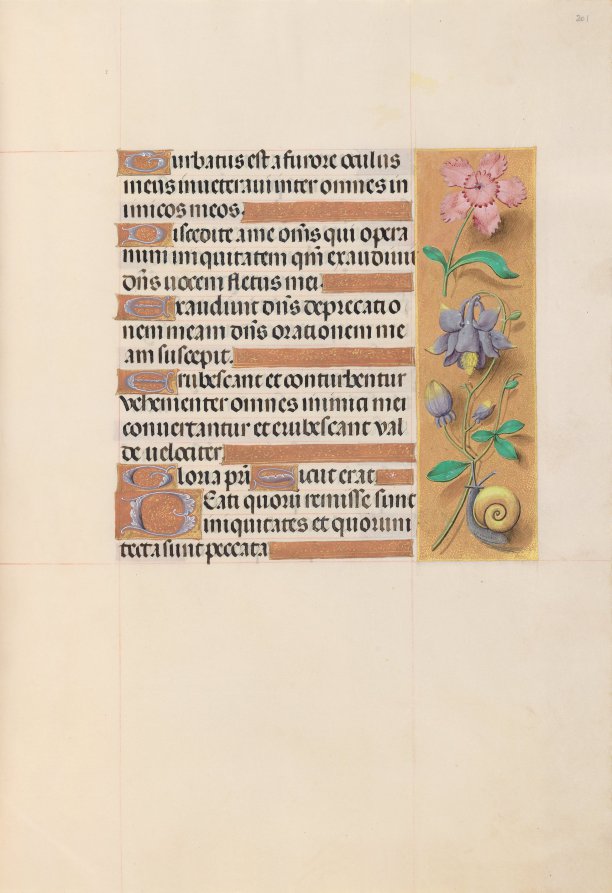 201
Turbatus est a furore oculus
meus inueteraui inter omnes in
imicos meos.
Discedite a me om̄s qui opera
mini iniquitatem qm̄ exaudiuit
dn̄s uocem fletus mei.
Exaudiuit dn̄s deprecatio
nem meam dn̄s orationem me
am suscepit.
Erubescant et conturbentur
vehementer omnes inimici mei
conuertantur et erubescant val
de uelociter
Gloria pr̄i Sicut erat
BEati quorū remisse sunt
iniquitates et quorum
tecta sunt peccata